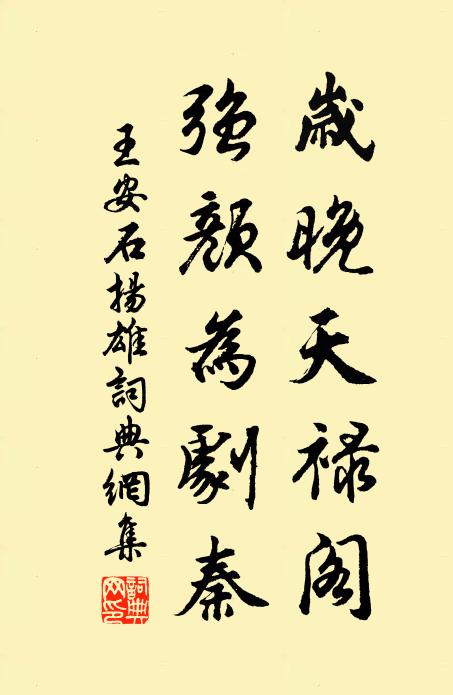 歲晚天祿閣
強顏為劇秦
王安石揚雄詞典網集
詞典網印